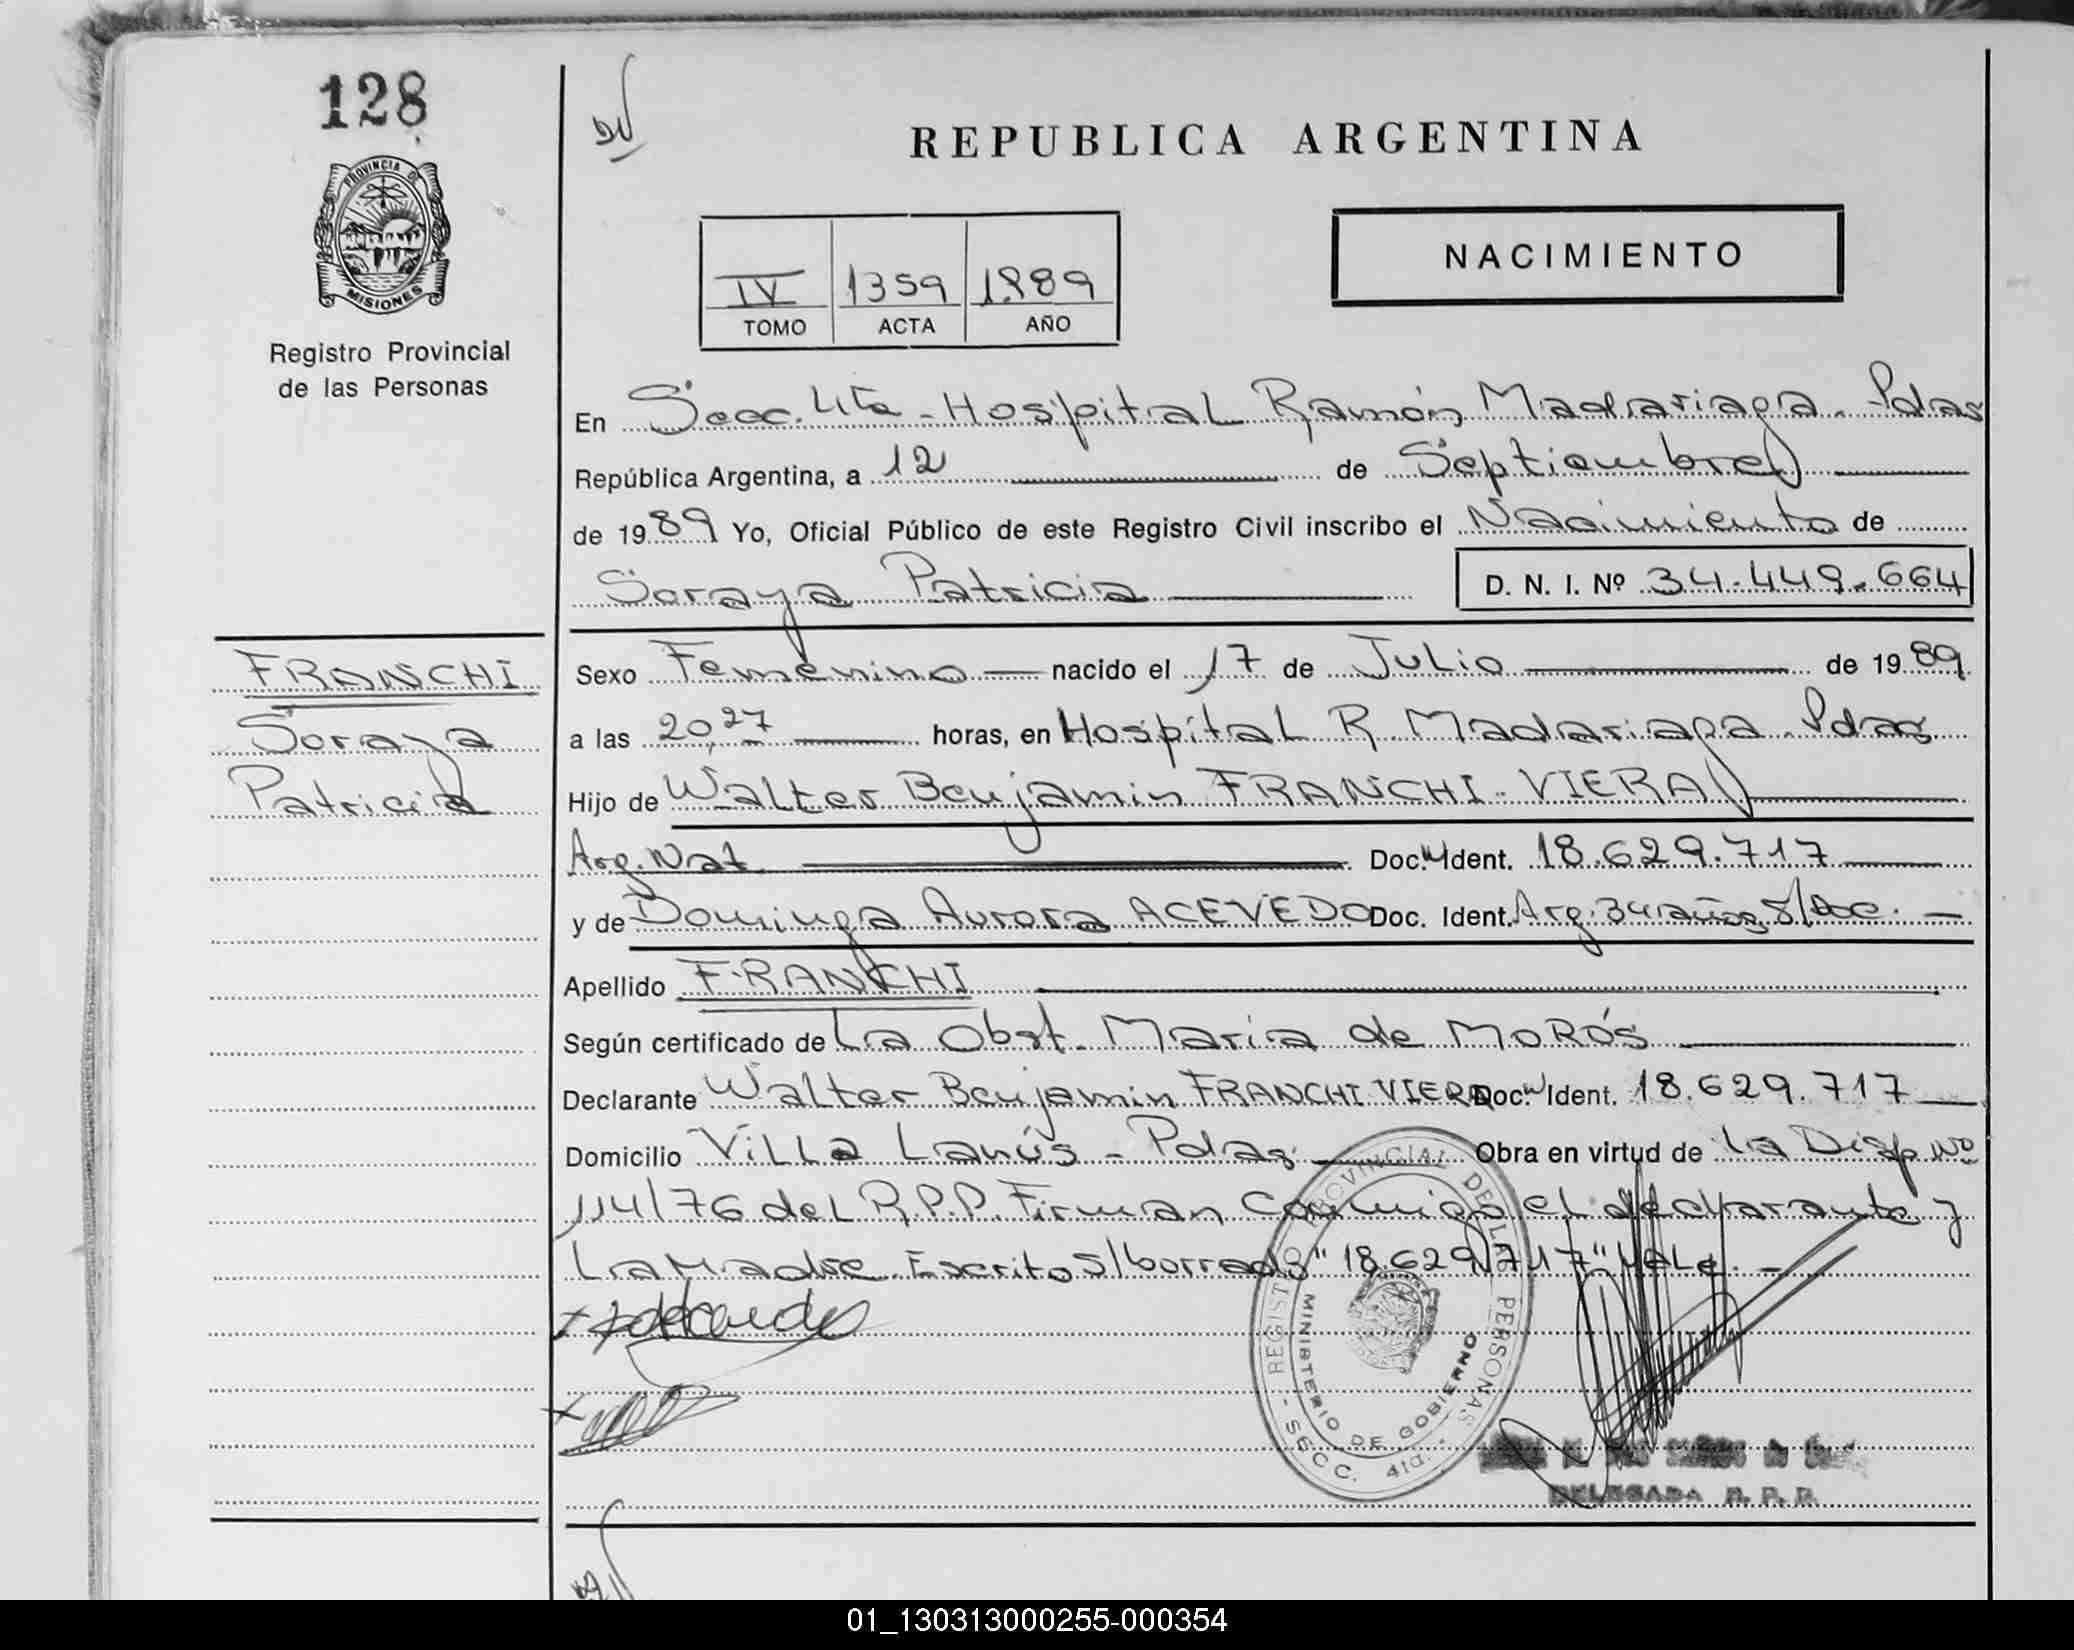 128
PROVINCIA DE
MISIONES
Registro Provincial
de las Personas
REPUBLICA ARGENTINA
NACIMIENTO
IV 1359 1989
TOMO ACTA AÑO
En Secc. 4ta - Hospital Ramón Madariaga. Pdas
República Argentina, a 12 de Septiembre
de 1989 Yo, Oficial Público de este Registro Civil inscribo el Nacimiento de
Soraya Patricia D. N. I. Nº 34.449.664
FRANCHI
Soraya
Patricia
Sexo Femenino nacido el 17 de Julio de 1989
a las 20,27 horas, en Hospital R. Madariaga. Pdas
Hijo de Walter Benjamin FRANCHI - VIERA
Arg. Nat. Doc. Ident. 18.629.717
y de Dominga Aurora ACEVEDO Doc. Ident. Arg. 34 años S/Doc.
Apellido FRANCHI
Según certificado de La Obst. María de MoRós
Declarante Walter Benjamin FRANCHI VIERA Doc. Ident. 18.629.717
Domicilio Villa Lanús - Pdas Obra en virtud de la Disp Nº
114/76 del R.P.P. Firman conmigo el declarante y
La Madre. Escrito S/borrado "18.629.717" Vale.
REGISTRO PROVINCIAL DE LAS PERSONAS
MINISTERIO DE GOBIERNO
- SECC. 4ta. -
DELEGADA R. P. P.
01_130313000255-000354